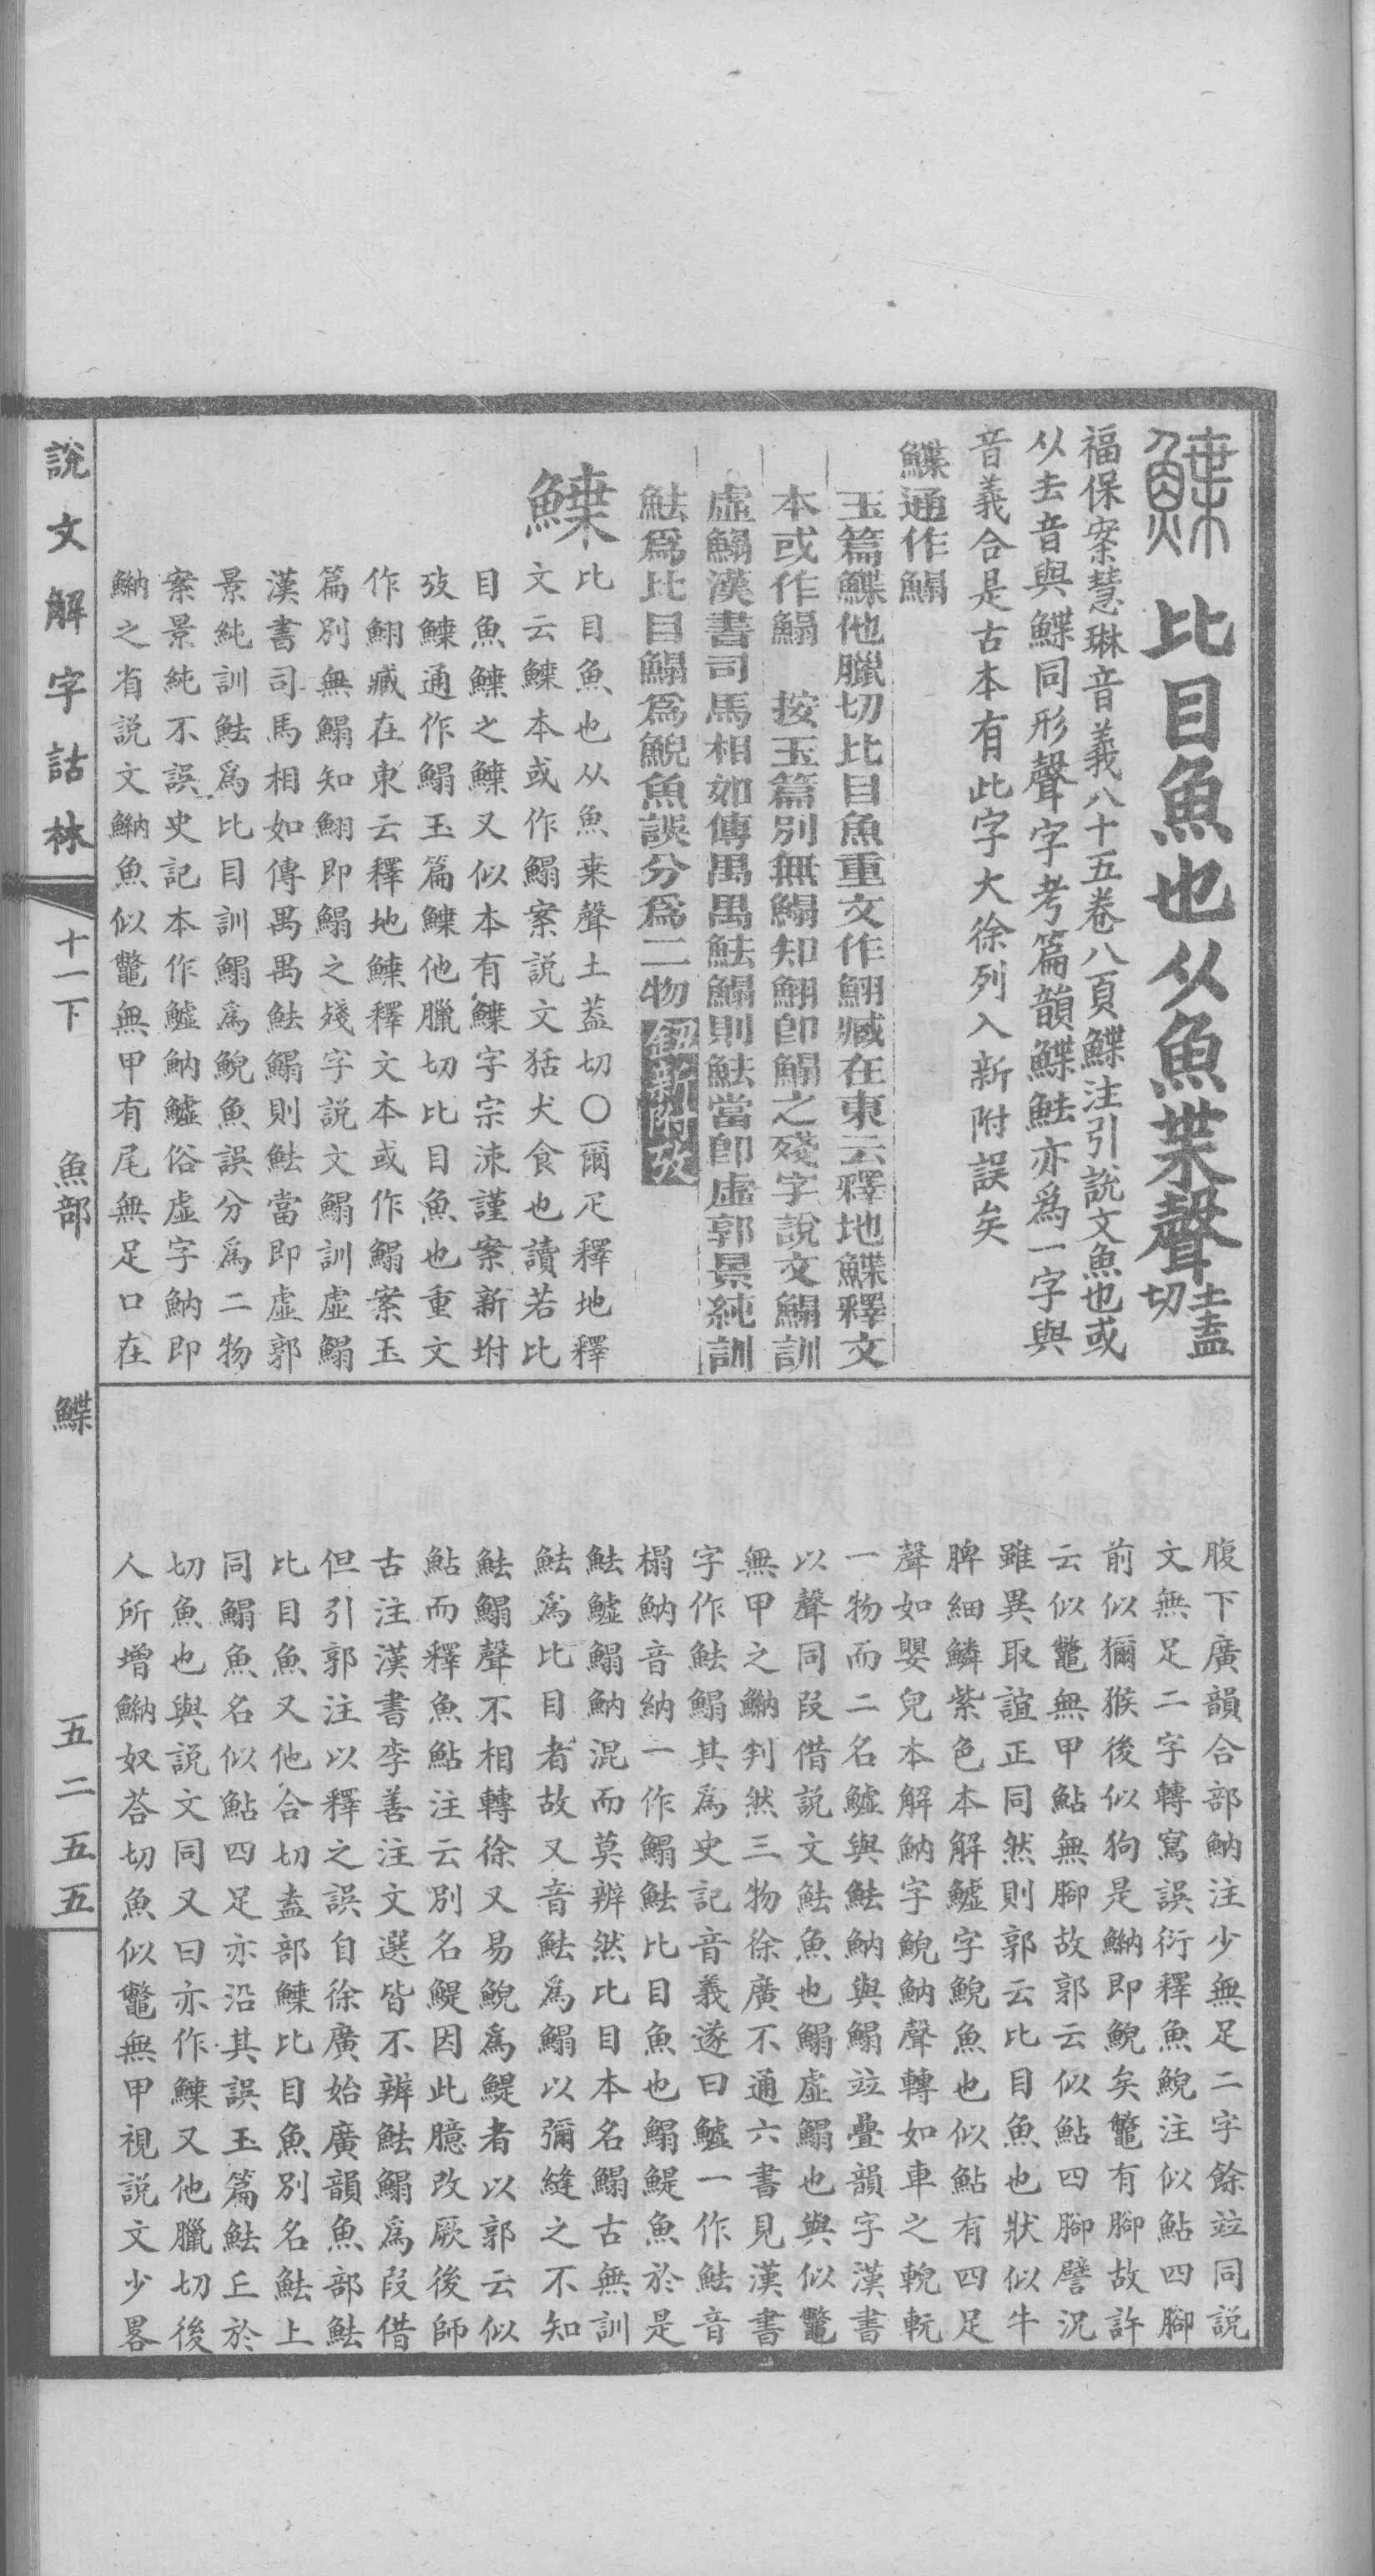 鰈 比目魚也从魚枼聲土盍切
福保案慧琳音義八十五卷八頁鰈注引說文魚也或
从去音與鰈同形聲字考篇韻鰈魼亦爲一字與
音義合是古本有此字大徐列入新附誤矣
鰈通作鰨
玉篇鰈他臘切比目魚重文作䱡臧在東云釋地鰈釋文
本或作鰨 按玉篇別無鰨知䱡卽鰨之殘字說文鰨訓
虛鰨漢書司馬相如傳禺禺魼鰨則魼當卽虛郭景純訓
魼爲比目鰨爲鯢魚誤分爲二物 鈕新附攷
鰈
比目魚也从魚枼聲土盍切〇爾疋釋地釋
文云鰈本或作鰨案說文狧犬食也讀若比
目魚鰈之鰈又似本有鰈字宗涑謹案新坿
攷鰈通作鰨玉篇鰈他臘切比目魚也重文
作䱡臧在東云釋地鰈釋文本或作鰨案玉
篇別無鰨知䱡即鰨之殘字說文鰨訓虛鰨
漢書司馬相如傳禺禺魼鰨則魼當即虛郭
景純訓魼爲比目訓鰨爲鯢魚誤分爲二物
案景純不誤史記本作鱋魶鱋俗虛字魶即
䱞之省說文䱞魚似鼈無甲有尾無足口在
腹下廣韻合部魶注少無足二字餘竝同說
文無足二字轉寫誤衍釋魚鯢注似鮎四腳
前似獼猴後似狗是䱞即鯢矣鼈有腳故許
云似鼈無甲鮎無腳故郭云似鮎四腳譬況
雖異取誼正同然則郭云比目魚也狀似牛
脾細鱗紫色本解鱋字鯢魚也似鮎有四足
聲如嬰兒本解魶字鯢魶聲轉如車之輗軏
一物而二名鱋與魼魶與鰨竝疊韻字漢書
以聲同叚借說文魼魚也鰨虛鰨也與似鼈
無甲之䱞判然三物徐廣不通六書見漢書
字作魼鰨其爲史記音義遂曰鱋一作魼音
榻魶音納一作鰨魼比目魚也鰨鯷魚於是
魼鱋鰨魶混而莫辨然比目本名鰨古無訓
魼爲比目者故又音魼爲鰨以彌縫之不知
魼鰨聲不相轉徐又易鯢爲鯷者以郭云似
鮎而釋魚鮎注云別名鯷因此臆改厥後師
古注漢書李善注文選皆不辨魼鰨爲叚借
但引郭注以釋之誤自徐廣始廣韻魚部魼
比目魚又他合切盍部鰈比目魚別名魼上
同鰨魚名似鮎四足亦沿其誤玉篇魼丘於
切魚也與說文同又曰亦作鰈又他臘切後
人所增䱞奴荅切魚似鼈無甲視說文少畧
說文解字詁林 十一下 魚部 鰈 五二五五